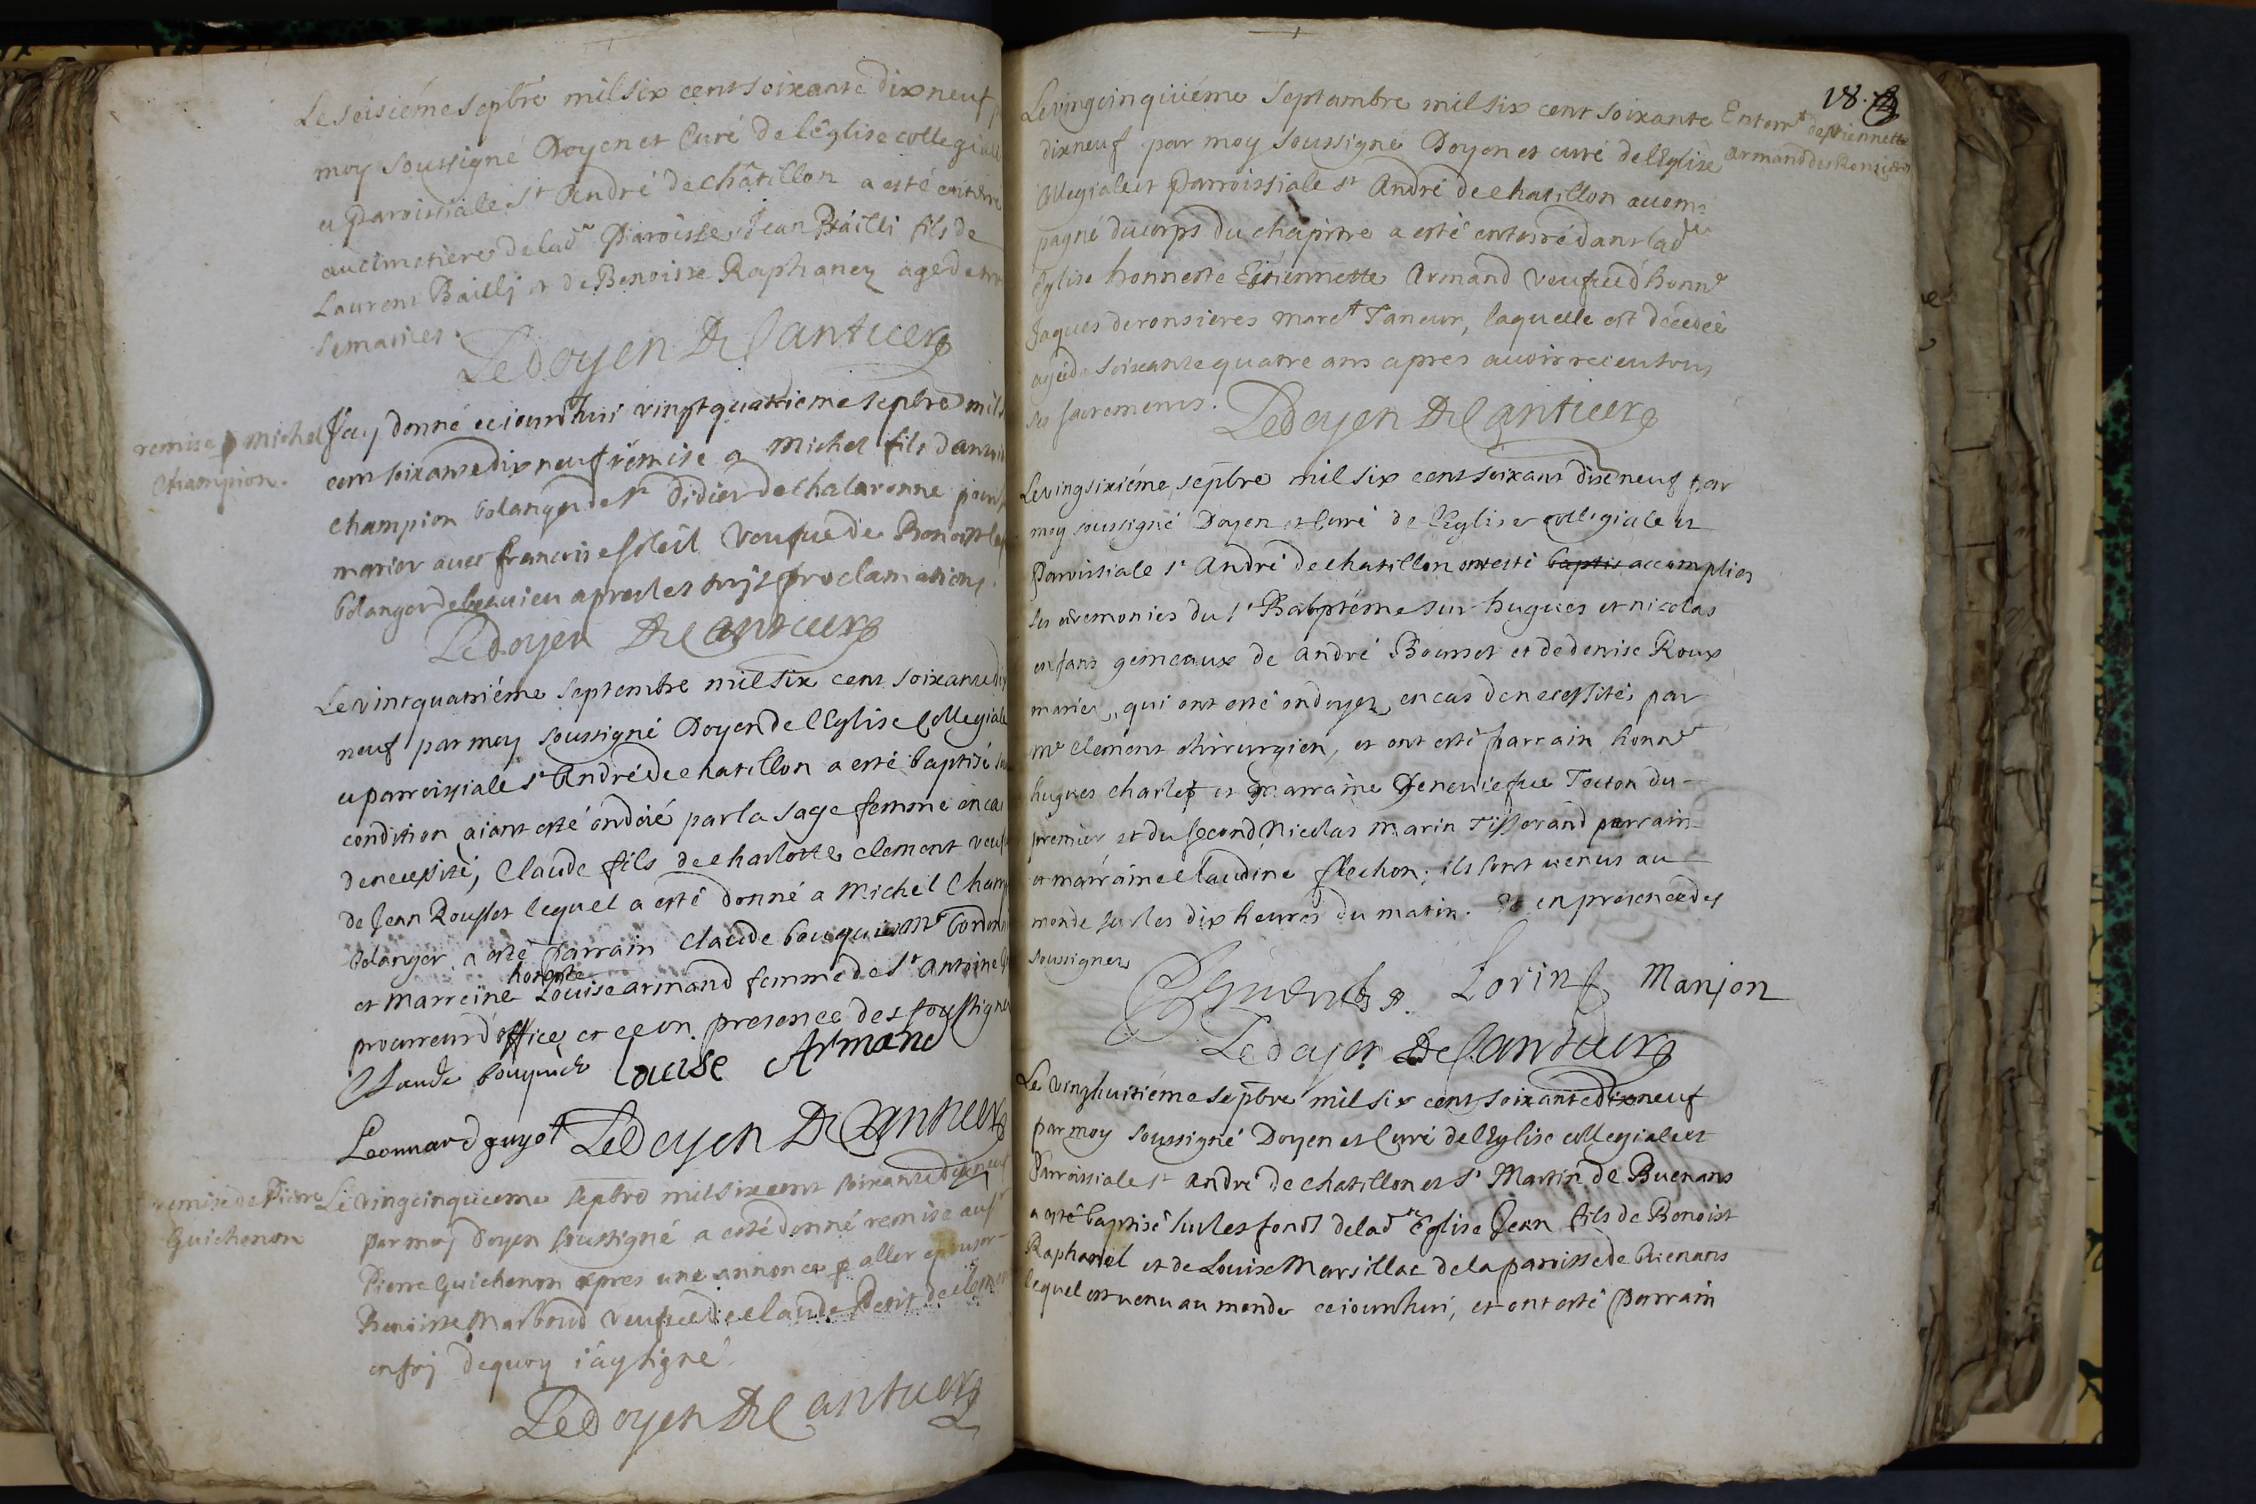 Le seisiéme septbre mil six cent soixante dix neuf p
moy soussigné Doyen et Curé de l'Eglise collegiale
et Paroissiale St André de châtillon a esté enterré
au cimetiere de lad. Paroisse Jean Bailli fils de
Laurent Bailli et de Benoisse Raphaney agé de
semaines.
Le doyen De Cantuer
remise p Michel
Champion.
J'ay donné ce iourdhui vingt quatrieme septbre mil
cent soixante dix neuf remise a Michel fils d'
Champion bolanger de St Didier de chalaronne pour
marier avec francoise soleil veufue de Benoist
bolanger de beauieu apres les trois proclamations.
Le doyen De Cantuer
Le vint quatriéme septembre mil six cent soixante dix
neuf par moy soussigné Doyen de l'Eglise Collegiale
et parroissiale St André de chatillon a esté baptisé
condition aiant esté ondoié par la sage femme en cas
de necessité, Claude fils de charlotte clement veuf
de Jean Rousset lequel a esté donné a Michel Cham
bolanger, a esté parrain claude bouquier Mr Cordon
et marreine honeste Louise armand femme de Sr antoine
procureur d'office, et ce en presence des soussignes
Claude bouquier Louise Armand
Leonnard guyot Le doyen De Cantuer
remise de Pierre
Guichenon
Le vingcinquieme septbre mil six cent soixante dix neuf
par moy Doyen soussigné a esté donné remise au Sr
Pierre Guichenon apres une annonce p aller epouser
Benoiste Marboud veufue de claude Petit de
en foi dequoy i'ay signé.
Le doyen De Cantuer
18.
Enterrt d'estiennette
armand des Ronsieres
Le vingcinquiéme Septambre mil six cent soixante
dixneuf par moy soussigné Doyen et curé de l'Eglise
Collegiale et Parroissiale St André de chatillon accom-
pagné du corps du chapitre a esté enterré dans lad
Eglise honneste Etiennette Armand veufue d'honne
Jaques deronsieres marct Taneur, laquelle est décedée
agée de soixante quatre ans apres auoir receu tous
ses sacrements. Le doyen De Cantuer
Le vingsixiéme septbre mil six cent soixant dixneuf par
moy soussigné Doyen et Curé de l'Eglise collegiale et
Paroissiale St André de chatillon ont esté baptis accomplies
les ceremonies du St Babptéme sur hugues et nicolas
enfans gemeaux de André Bousset et de denise Roux
mariez, qui ont esté ondoyez, en cas de necessité, par
Mr Clement chirurgien, et ont esté parrain honne
hugues charlet et marraine Geneuiefue Teton du
premier et du second Nicolas Marin Tisserand parrain
et marraine Claudine flechon; ils sont venus au
monde sus les dix heures du matin. en presence des
soussignez
Clement Lorin Manjon
Le doyen De Cantuer
Le vinghuitiéme septbre mil six cent soixante dixneuf
par moy soussigné Doyen et Curé de l'Eglise collegiale et
Parroissiale St André de chatillon et St Martin de Buenans
a esté baptisé sus les fonds de lad Eglise Jean fils de Benoist
Raphanel et de Louise Marsillac de la paroisse de buenans
lequel est venu au monde ce iourdhui, et ont esté parrain